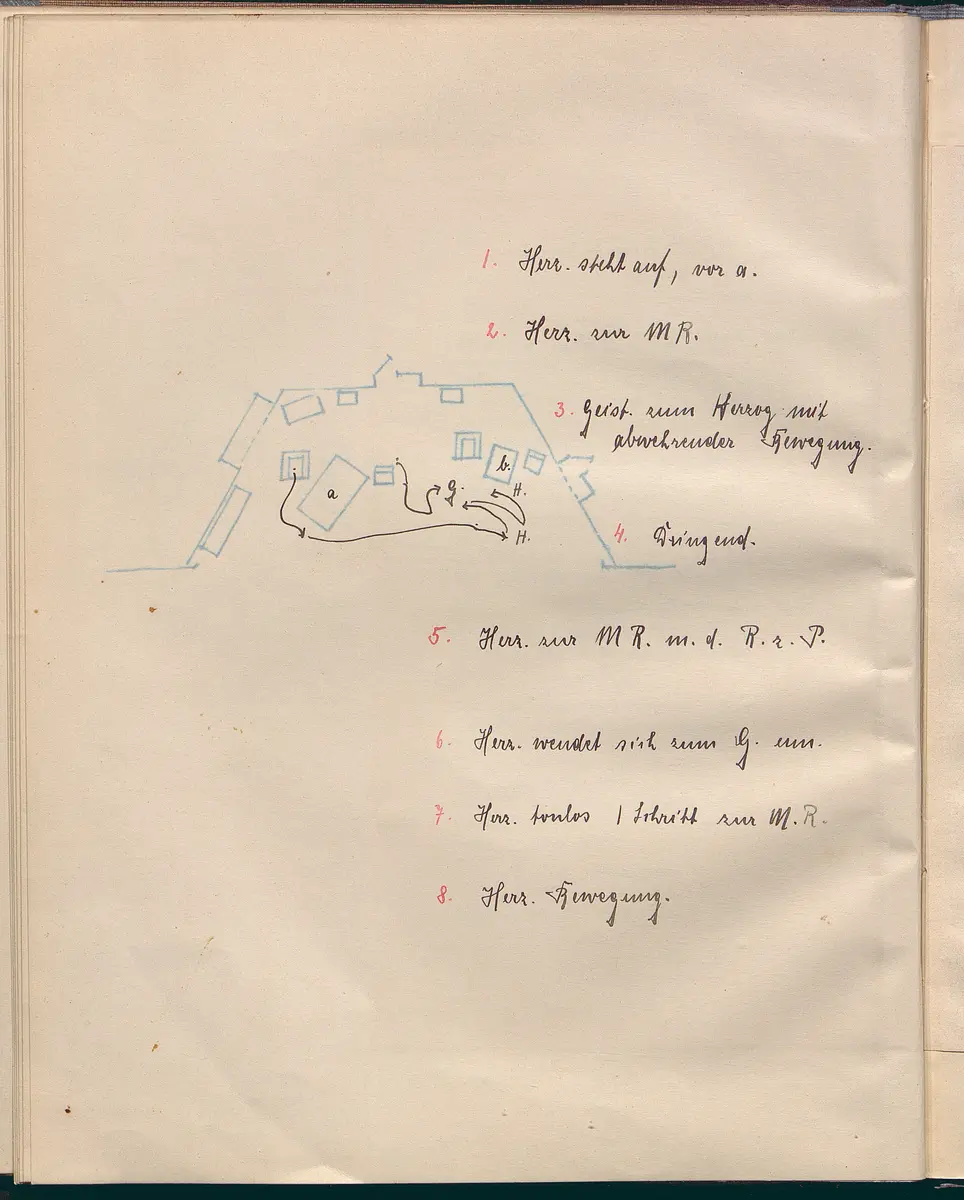 1. Herz. steht auf, vor a.
2. Herz. zur M R.
3. Geist. zum Herzog mit
abwehrender Bewegung.
a
b.
G.
H.
H.
4. Dringend.
5. Herz. zur M R. m. d. R. z. P.
6. Herz. wendet sich zum G. um.
7. Herz. tonlos 1 Schritt zur M. R.
8. Herz. Bewegung.